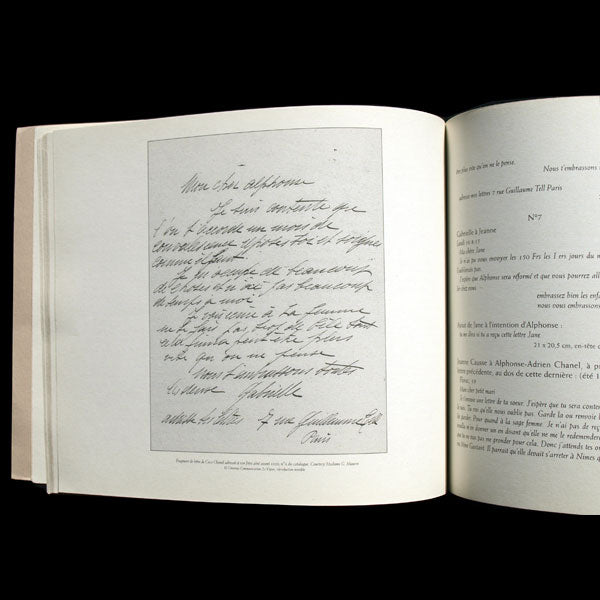 Mon cher alphonse
Je suis contente que
l'on t'accorde un mois de
convalescence repose toi et soignes
comme il faut
Je m'occupe de beaucoup
de choses et n'ai pas beaucoup
de temps à moi
J'écris à ta femme
ne te fais pas trop de bile tout
cela finira peut être plus
vite qu'on ne pense
Nous t'embrassons toutes
les deux Gabrielle
adresse tes lettres 7 rue Guillaume Tell
Paris
Fragment de lettre de Coco Chanel adressée à son frère aîné avant 1920, n°1 du catalogue. Courtesy Madame G. Maurin
être plus vite qu'on ne pense.
Nous t'embrassons
adresse mes lettres 7 rue Guillaume Tell Paris
N°7
Gabrielle à Jeanne
Lundi
Ma chère Jane
Je n'ai pu nous envoyer les 150 Frs les 1 ers jours du
J'espère que Alphonse sera réformé et que nous pourrez
chez nous
embrassez bien les
nous nous embrassons
Ajout de Jane à l'intention d'Alphonse :
tu me diras si tu a reçu cette lettre Jane
21 x 20,5 cm, en-tête
Jeanne Causse à Alphonse-Adrien Chanel, à
lettre précédente, au dos de cette dernière : (été
Mon cher petit mari
Je t'envoie une lettre de ta soeur. J'espère que tu sera
Tu voi qu'elle nous oublie pas. Garde la ou renvoie
pour quand tu sera la sage femme. Je n'ai pas de
donner un en disant qu'elle ne me le redemander
ne vais pas me gronder pour cela. Donc j'attends tes
Mme Goutant. Il parraît qu'elle devait s'arreter à Nimes